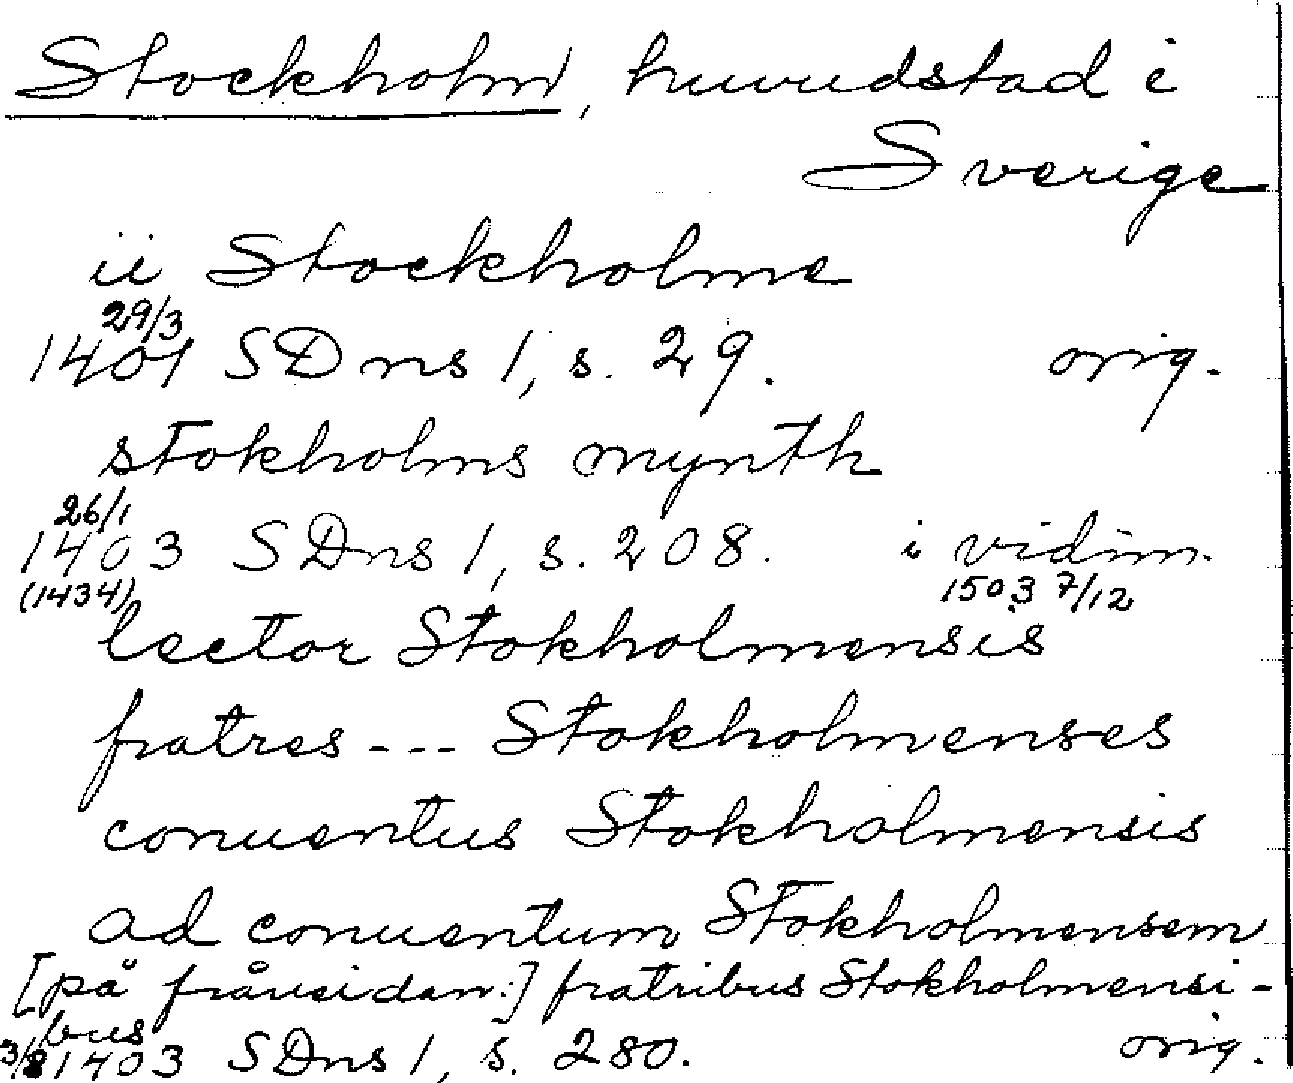 Stockholm, huvudstad i
Sverige
ii Stockholme
29/3
1401 SDns 1, s. 29. orig.
stokholms mynth
26/1
1403 SDns 1, s. 208. i vidim.
(1434) 1503 7/12
lector Stokholmensis
fratres --- Stokholmenses
conuentus Stokholmensis
ad conuentum Stokholmensem
[på frånsidan:] fratribus Stokholmensi-
bus
3/8 1403 SDns 1, s. 280. orig.